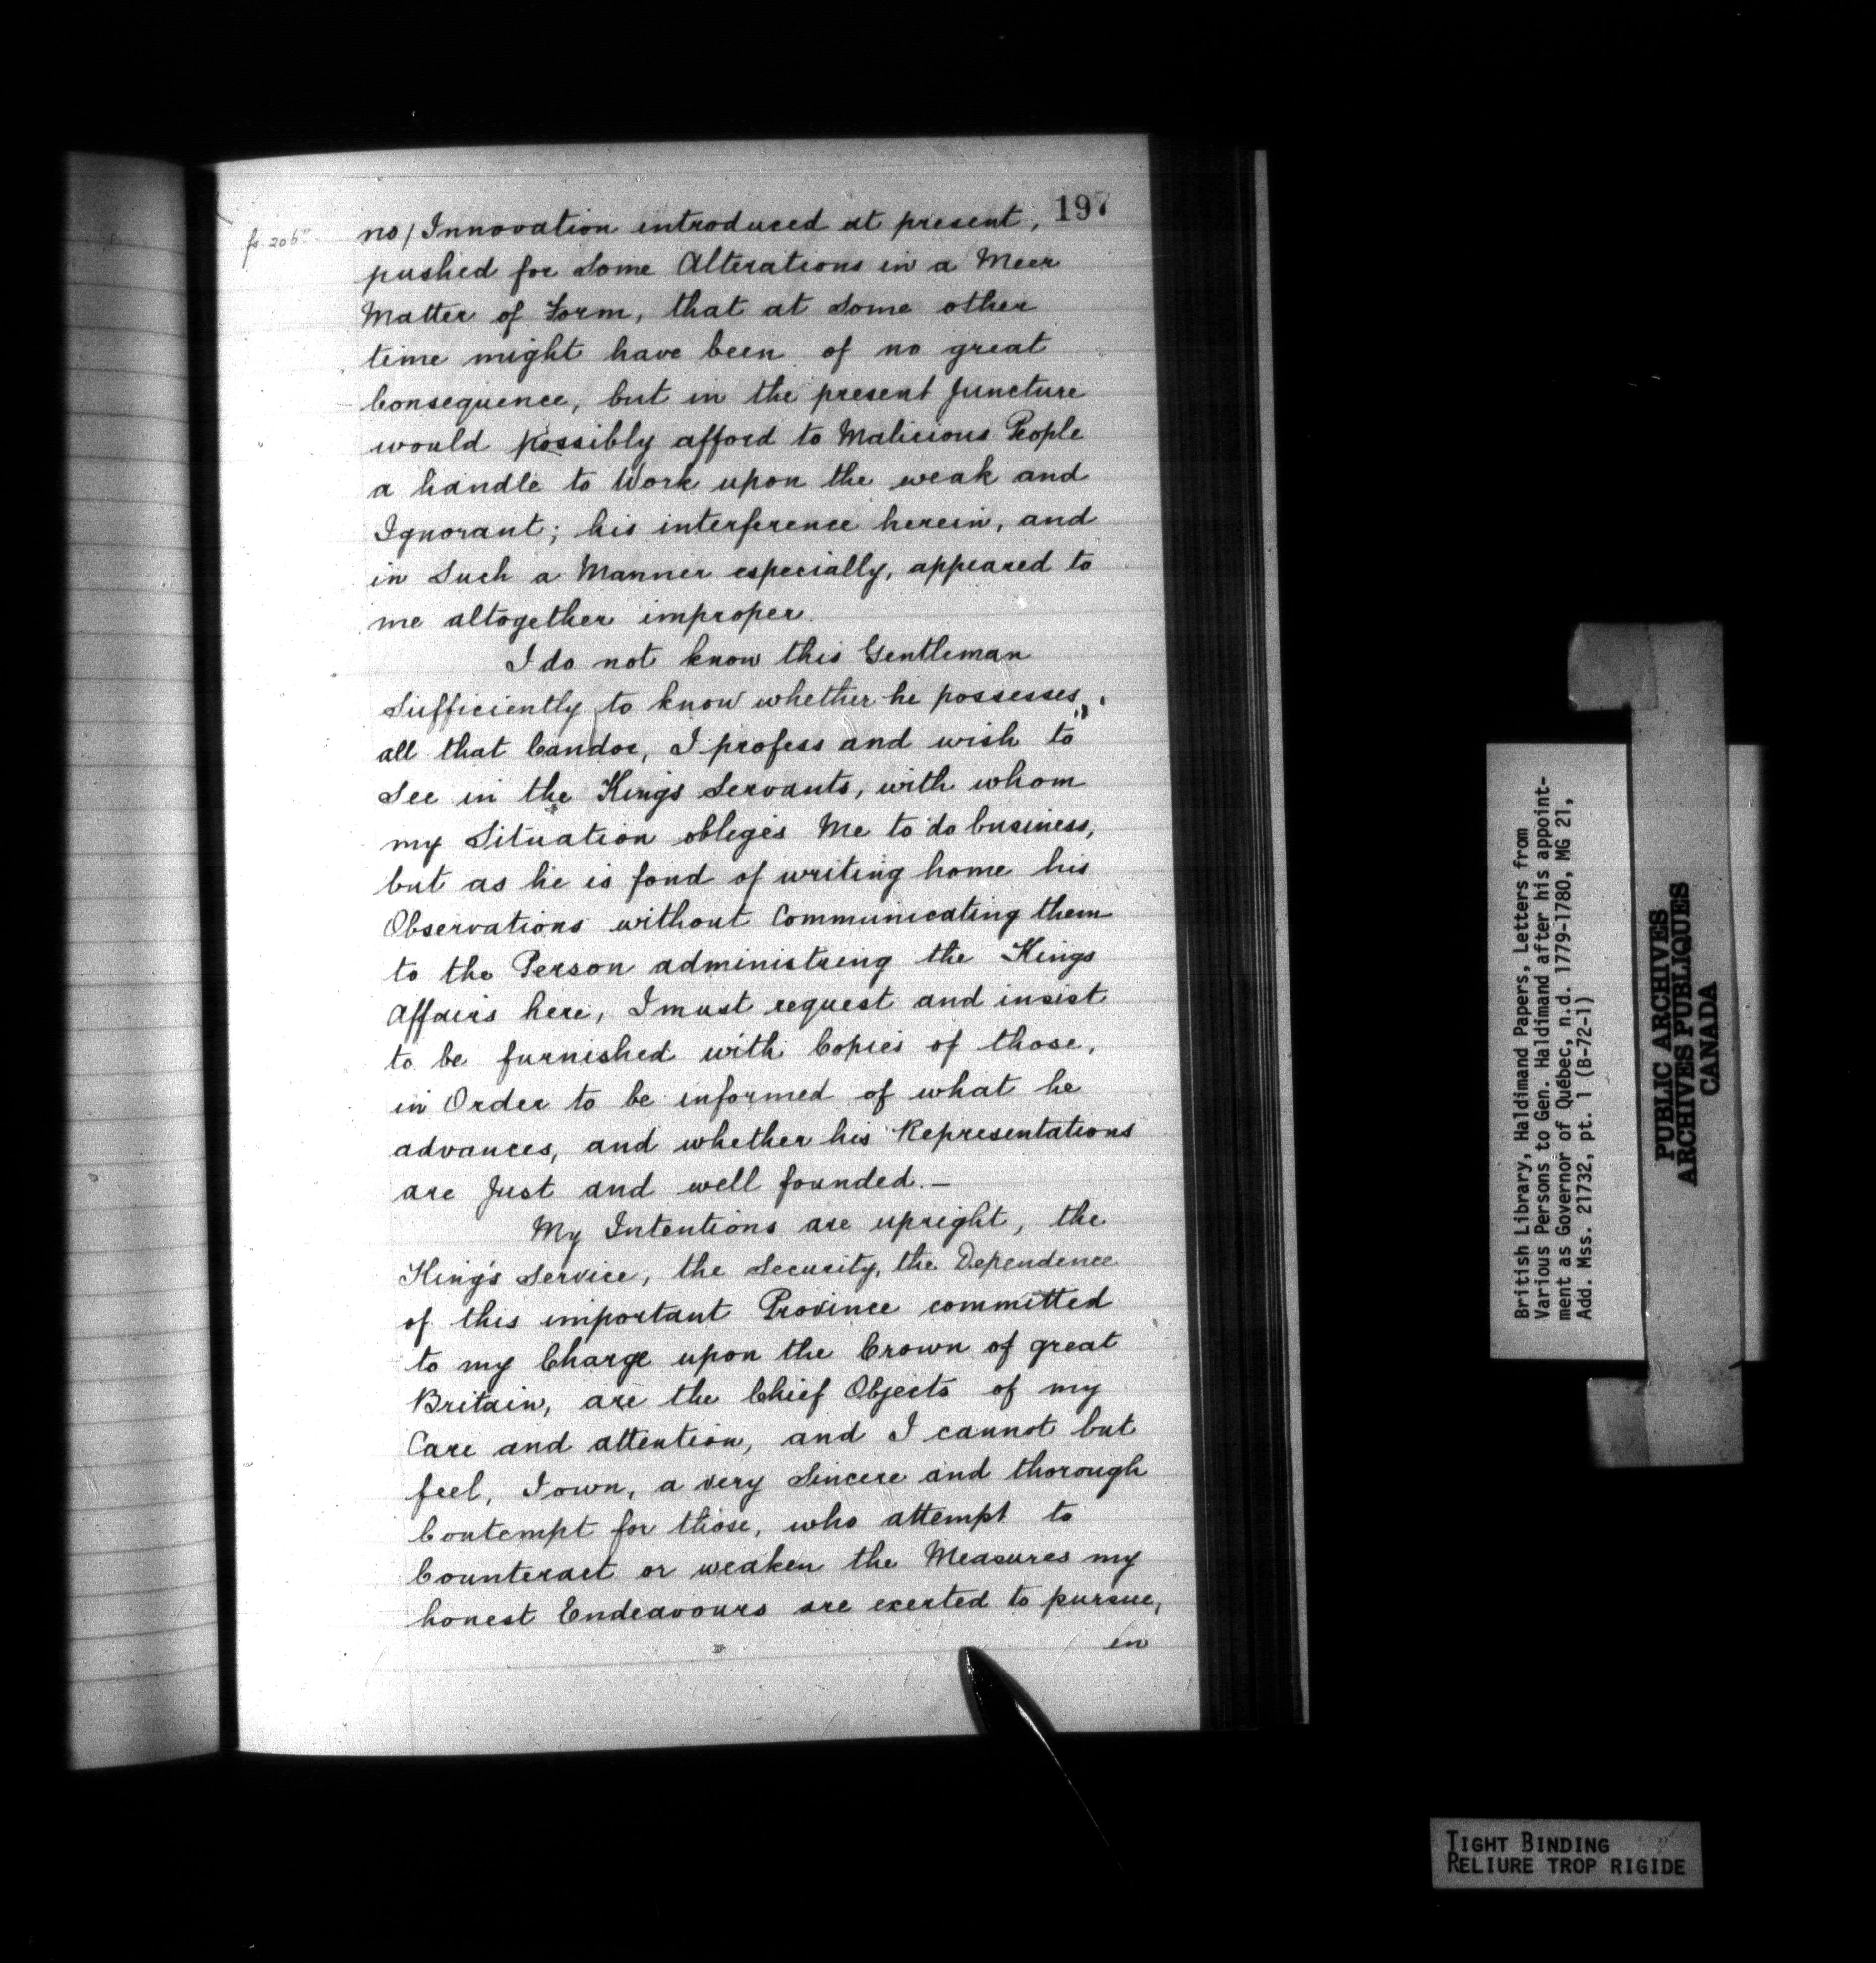 197
fo. 206
no / Innovation introduced at present,
pushed for Some Alterations in a Meer
Matter of Form, that at Some other
time might have been of no great
Consequence, but in the present Juncture
would possibly afford to Malicious People
a handle to Work upon the weak and
Ignorant; his interference herein, and
in Such a Manner especially, appeared to
me altogether improper.
I do not know this Gentleman
Sufficiently to know whether he possesses
all that Candor, I profess and wish to
See in the Kings Servants, with whom
my Situation obleges Me to do business,
but as he is fond of writing home his
Observations without Communicating them
to the Person administring the Kings
Affairs here, I must request and insist
to be furnished with Copies of those,
in Order to be informed of what he
advances, and whether his Representations
are Just and well founded.—
My Intentions are upright, the
King's Service, the Security, the Dependence
of this important Province committed
to my Charge upon the Crown of great
Britain, are the Chief Objects of my
Care and attention, and I cannot but
feel, I own, a very Sincere and thorough
Contempt for those, who attempt to
Counteract or weaken the Measures my
honest Endeavours are exerted to pursue,
in
British Library, Haldimand Papers, Letters from
Various Persons to Gen. Haldimand after his appoint-
ment as Governor of Québec, n.d. 1779-1780, MG 21,
Add. Mss. 21732, pt. 1 (B-72-1)
PUBLIC ARCHIVES
ARCHIVES PUBLIQUES
CANADA
TIGHT BINDING
RELIURE TROP RIGIDE